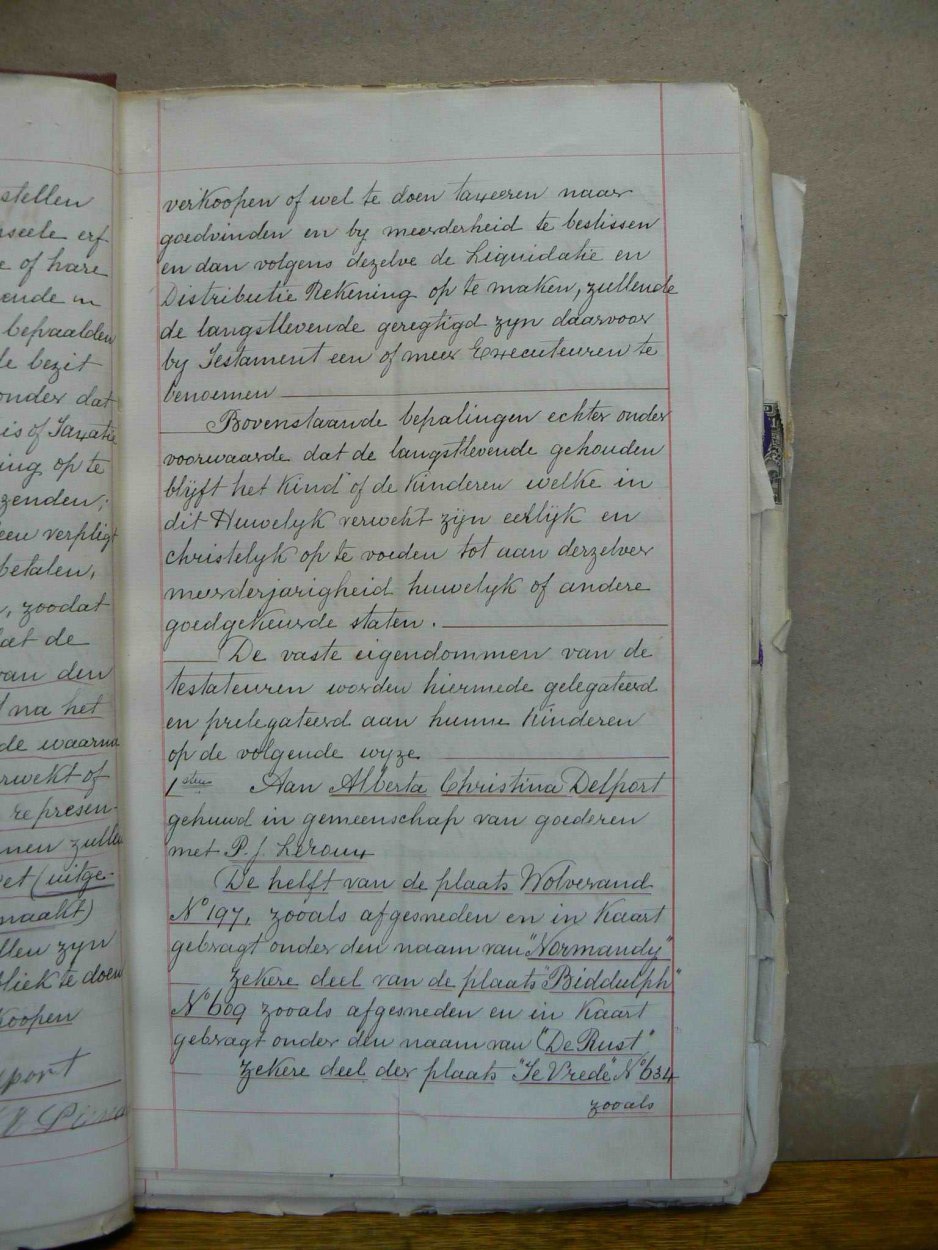 stellen
erf
e of hare
ende in
bepaalden
le bezit
onder dat
is of Taxatie
ing op te
zenden;
een verpligt
betalen,
, zoodat
dat de
van den
na het
de waarna
rwekt of
represen-
nen zulle
et (uitge-
maakt)
llen zyn
bliek te doen
koopen
port
verkoopen of wel te doen taxeeren naar
goedvinden en by meerderheid te beslissen
en dan volgens dezelve de Liquidatie en
Distributie Rekening op te maken, zullende
de langstlevende geregtigd zyn daarvoor
by Testament een of meer Executeuren te
benoemen
Bovenstaande bepalingen echter onder
voorwaarde dat de langstlevende gehouden
blijft het Kind of de Kinderen welke in
dit Huwelyk verwekt zijn eerlijk en
christelyk op te voeden tot aan derzelver
meerderjarigheid huwelyk of andere
goedgekeurde staten.
De vaste eigendommen van de
testateuren worden hiermede gelegateerd
en prelegateerd aan hunne Kinderen
op de volgende wyze
1sten Aan Alberta Christina Delport
gehuwd in gemeenschap van goederen
met P. J. Leroux
De helft van de plaats Wolverand
No 197, zooals afgesneden en in Kaart
gebragt onder den naam van "Normandy"
zekere deel van de plaats "Biddulph"
No 609 zooals afgesneden en in Kaart
gebragt onder den naam van "De Rust"
zekere deel der plaats "Te Vrede" No 634
zooals